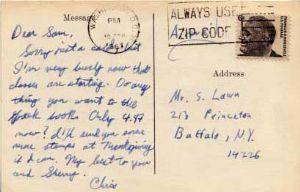 Message
PM
ALWAYS USE
ZIP CODE
Dear Sam,
Sorry not a card but
I'm very busy now that
classes are starting. Do any
thing you want to the
book Only 4.97
now? I'll send you some
more stamps at Thanksgiving
if I can. My best to you
and Sherry.
Chris
Address
Mr. S. Lawn
213 Princeton
Buffalo, N.Y.
14226